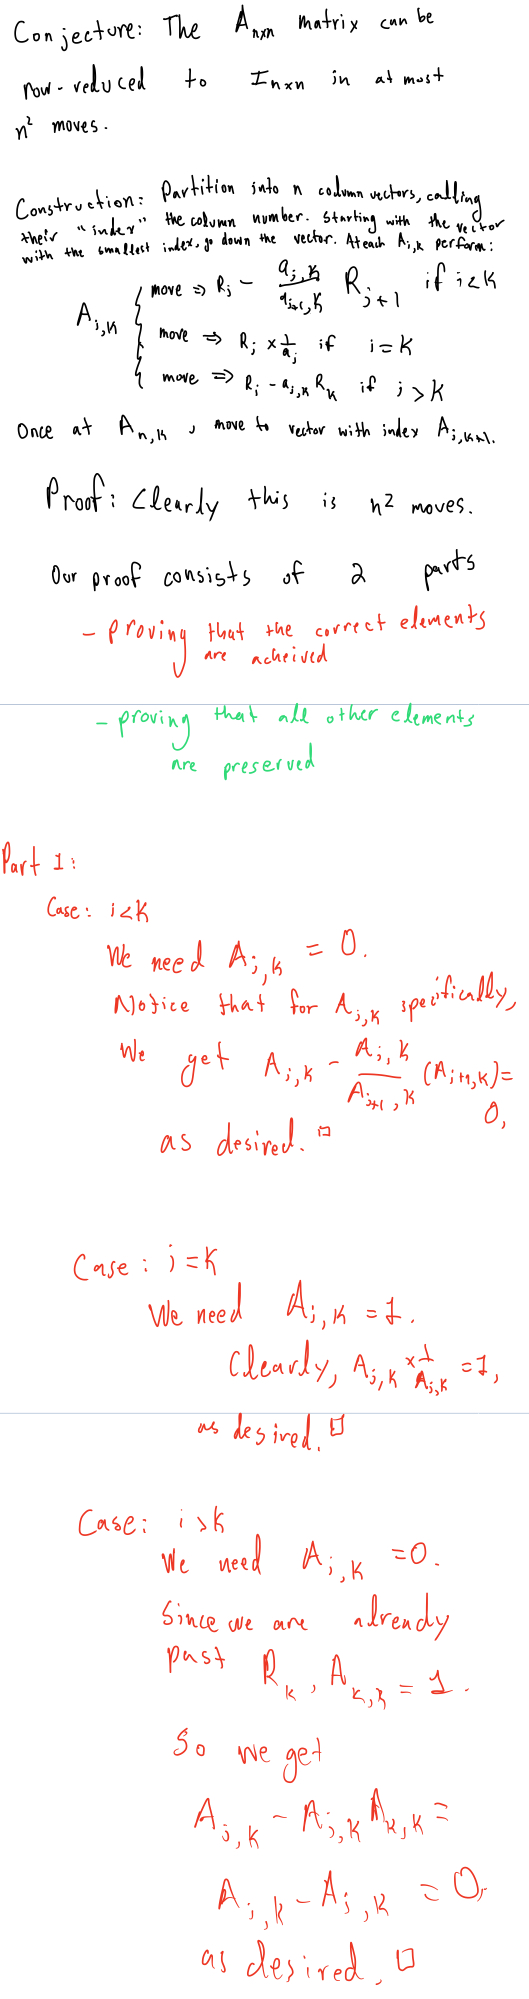 Conjecture: The A_{nxn} matrix can be
row-reduced to I_{nxn} in at most
n² moves.
Construction: Partition into n column vectors, calling
their "index" the column number. Starting with the vector
with the smallest index, go down the vector. At each A_{j,k} perform:
A_{j,k} { move ⇒ R_j - \frac{a_{j,k}}{a_{j+1,k}} R_{j+1} if j<k
move ⇒ R_j × \frac{1}{a_j} if j=k
move ⇒ R_j - a_{j,k} R_k if j>k
Once at A_{n,k}, move to vector with index A_{j,k+1}.
Proof: Clearly this is n² moves.
Our proof consists of 2 parts
- proving that the correct elements
are acheived
- proving that all other elements
are preserved
Part 1:
Case: j<k
We need A_{j,k} = 0.
Notice that for A_{j,k} specifically,
We get A_{j,k} - \frac{A_{j,k}}{A_{j+1,k}} (A_{j+1,k}) =
0,
as desired. □
Case: j=k
We need A_{j,k} = 1.
Clearly, A_{j,k} × \frac{1}{A_{j,k}} = 1,
as desired. □
Case: j>k
We need A_{j,k} = 0.
Since we are already
past R_k, A_{k,k} = 1.
So we get
A_{j,k} - A_{j,k} A_{k,k} =
A_{j,k} - A_{j,k} = 0,
as desired. □